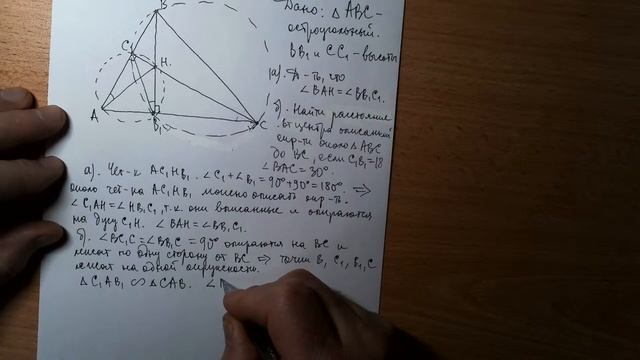 B
C₁
H.
A
B₁
C
Дано: △ABC –
остроугольный.
BB₁ и CC₁ – высоты
а). Д-ть, что
∠BAH = ∠BB₁C₁.
б). Найти расстояние
от центра описанной
окр-ти около △ABC
до BC, если C₁B₁ = 18
∠BAC = 30°.
а). Чет-к AC₁HB₁. ∠C₁ + ∠B₁ = 90° + 90° = 180°. ⇒
около чет-ка AC₁HB₁ можно описать окр-ть.
∠C₁AH = ∠HB₁C₁, т.к. они вписанные и опираются
на дугу C₁H. ∠BAH = ∠BB₁C₁.
б). ∠BC₁C = ∠BB₁C = 90° опираются на BC и
лежат по одну сторону от BC ⇒ точки B, C₁, B₁, C
лежат на одной окружности.
△C₁AB₁ ∽ △CAB. ∠